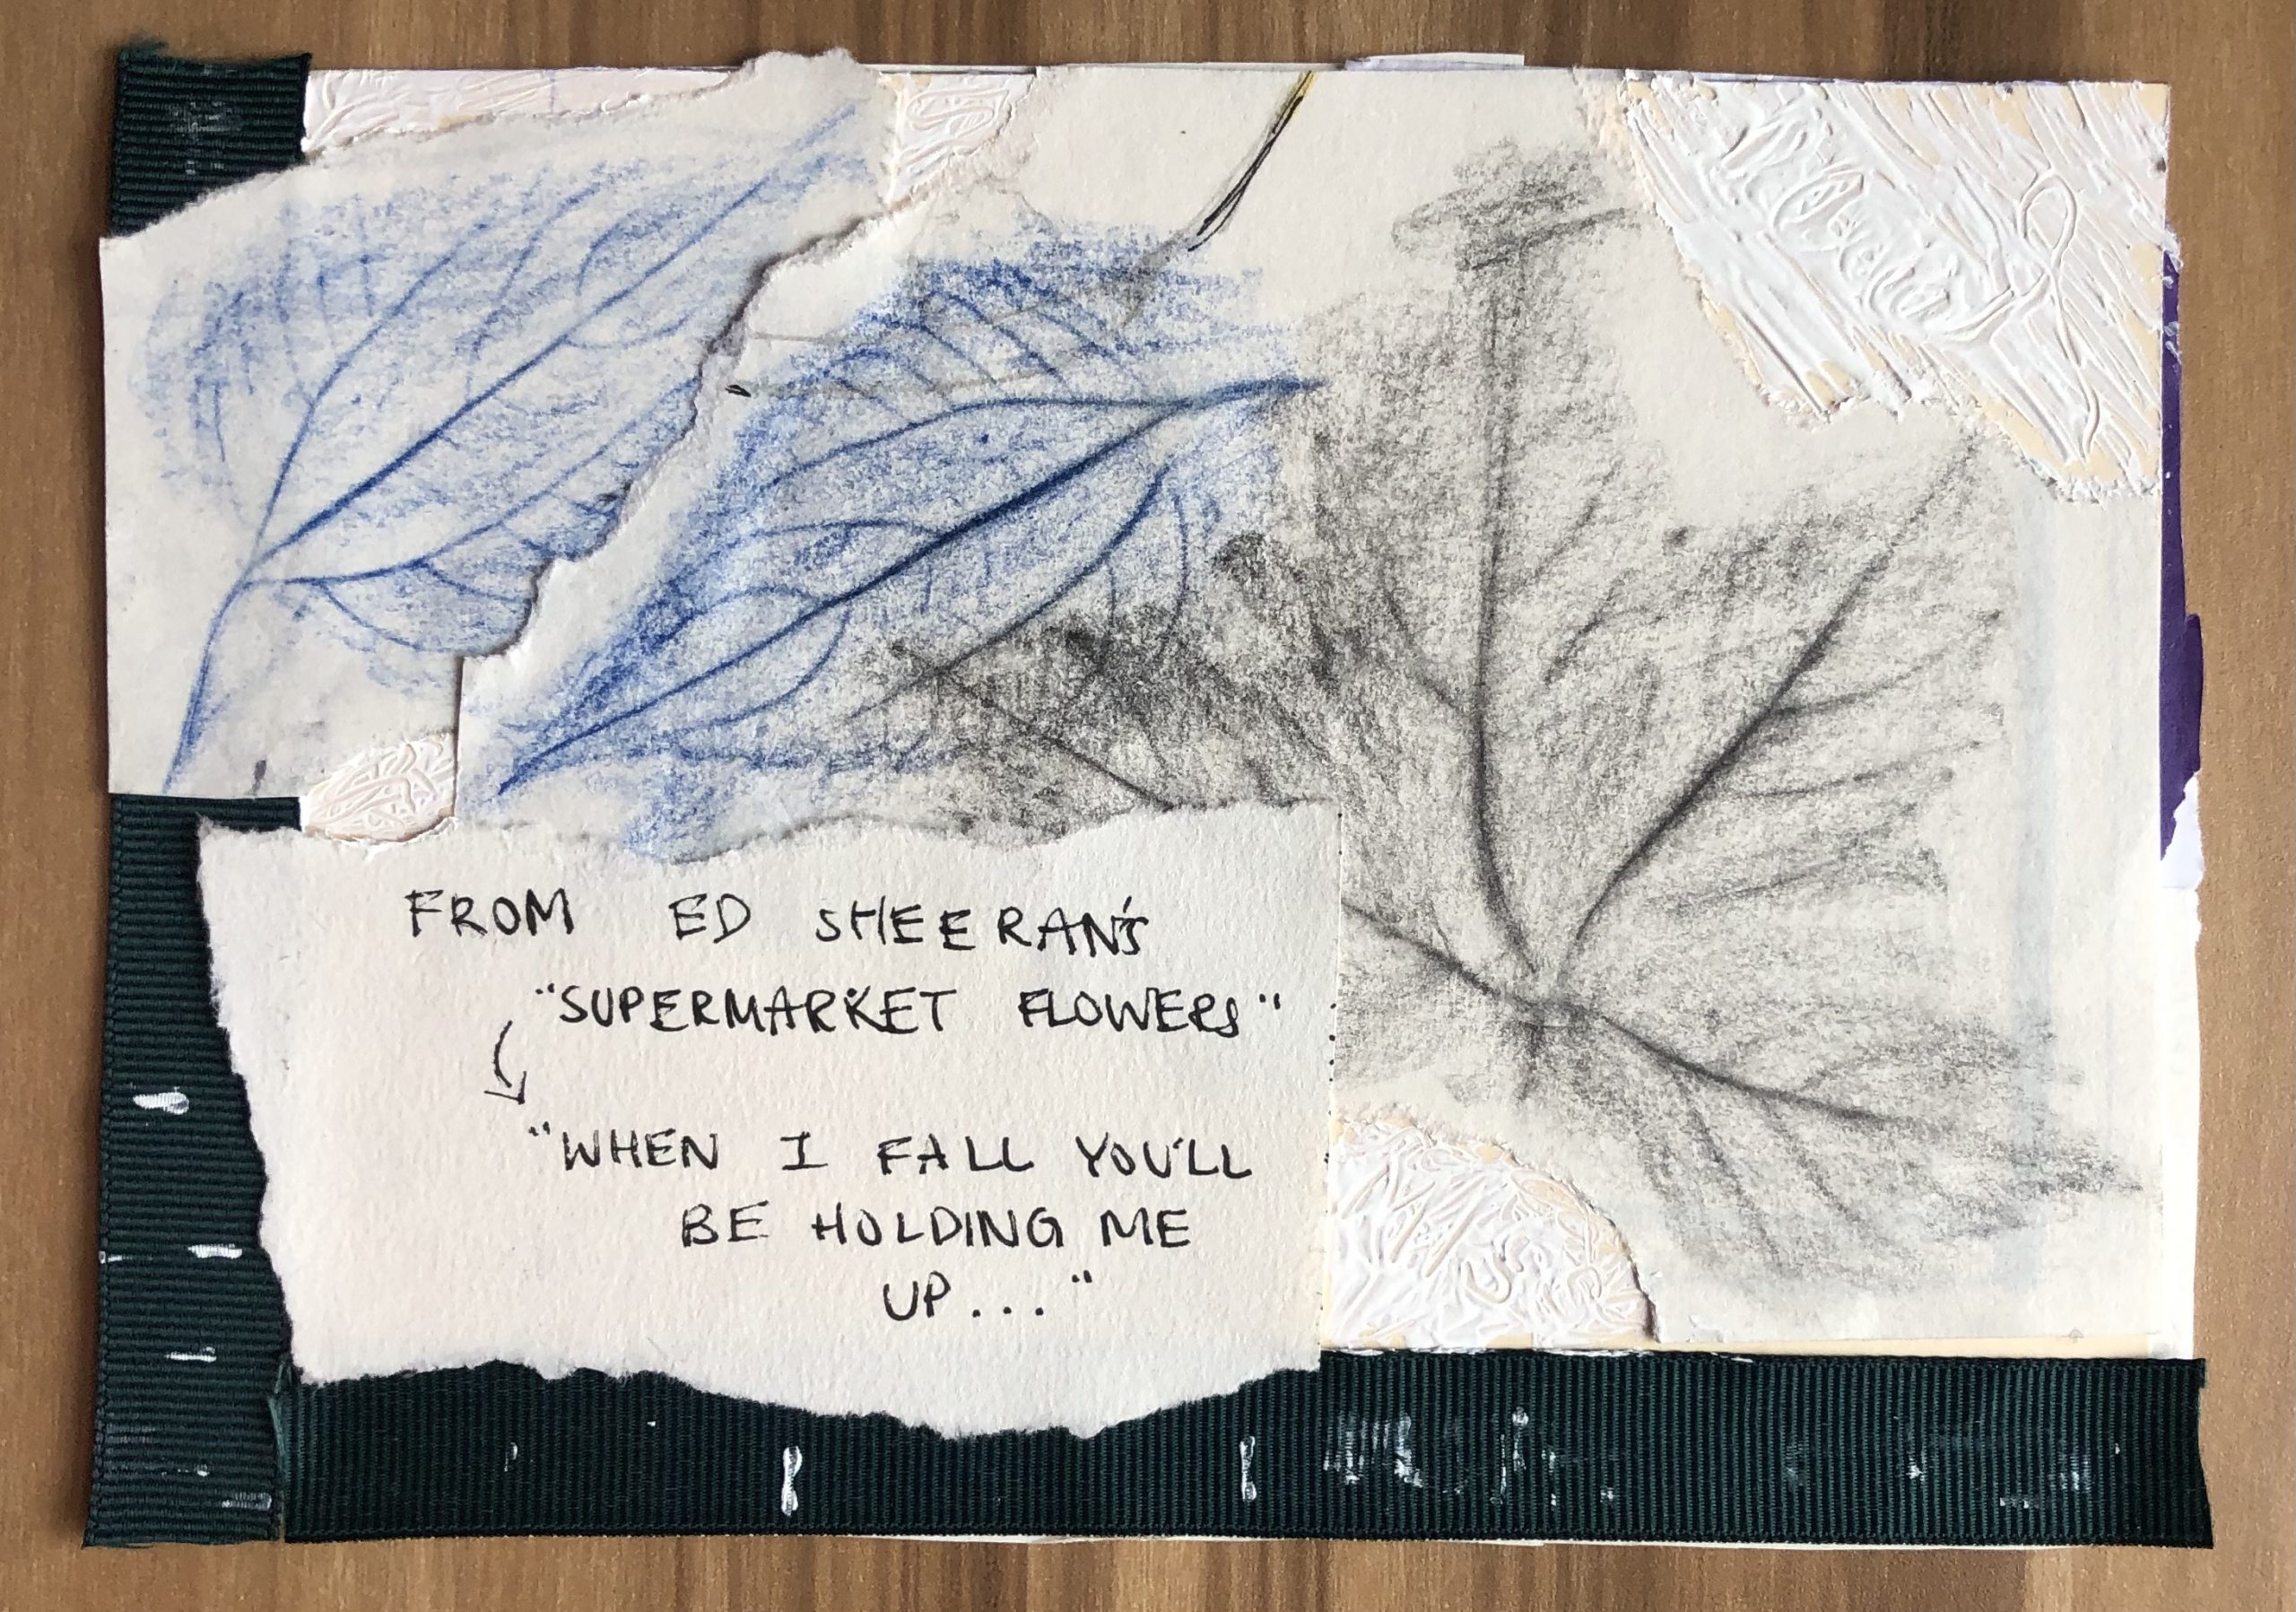 FROM ED SHEERAN'S
"SUPERMARKET FLOWERS"
"WHEN I FALL YOU'LL
BE HOLDING ME
UP..."